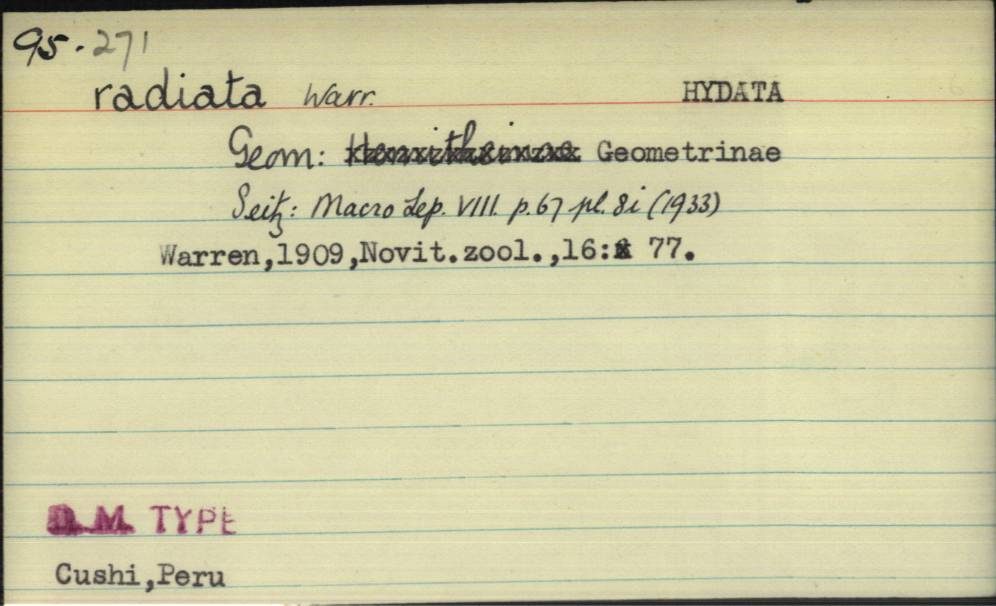 95.271
radiata Warr. HYDATA
Geom: Hemitheinae Geometrinae
Seitz: Macro Lep. VIII. p.67 pl. 8i (1933)
Warren,1909,Novit.zool.,16: 77.
B.M. TYPE
Cushi,Peru